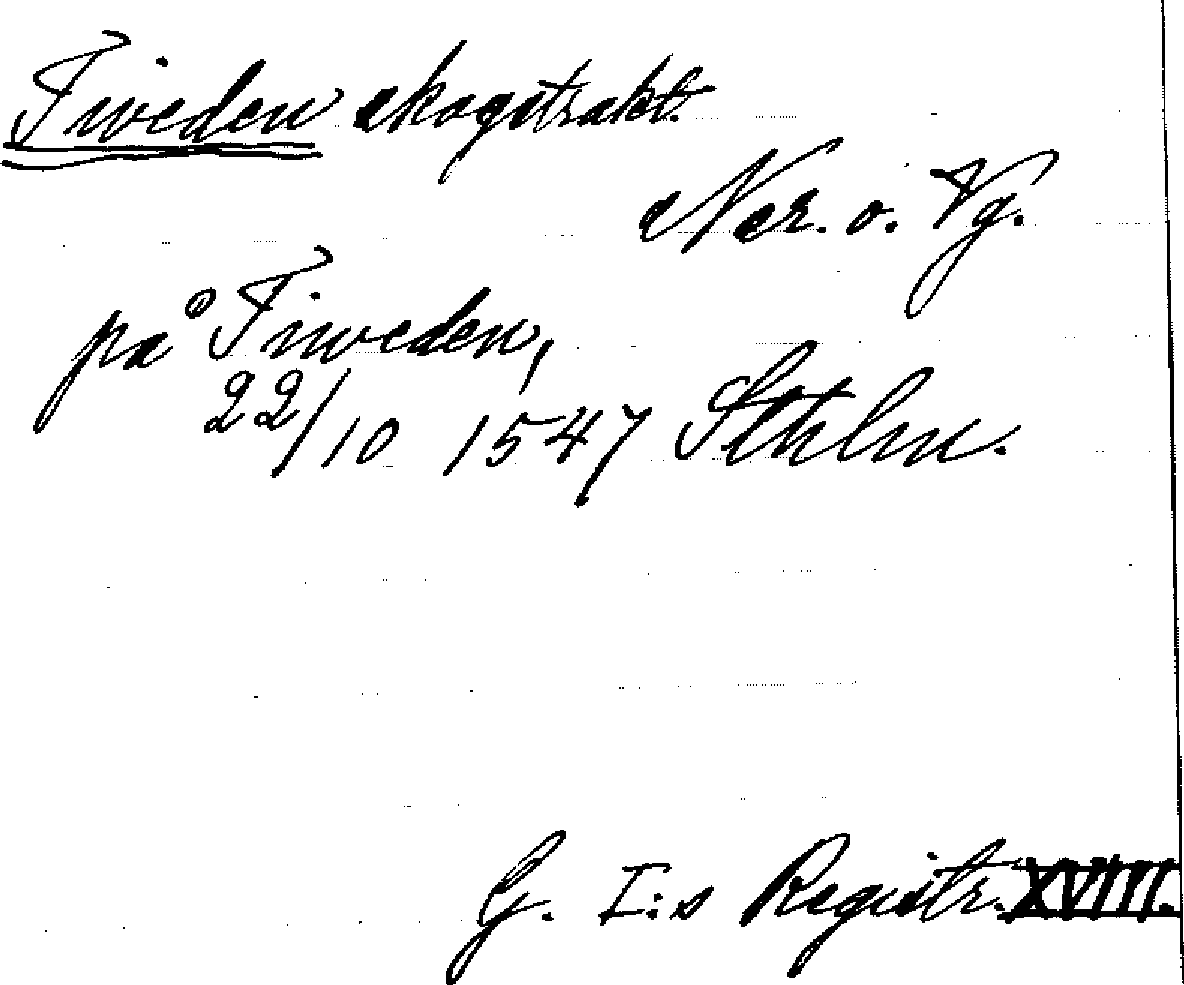 Tiveden skogstrakt.
Ner. o. Vg.
på Tiweden,
22/10 1547 Sthlm.
G. I:s Registr. XVIII.